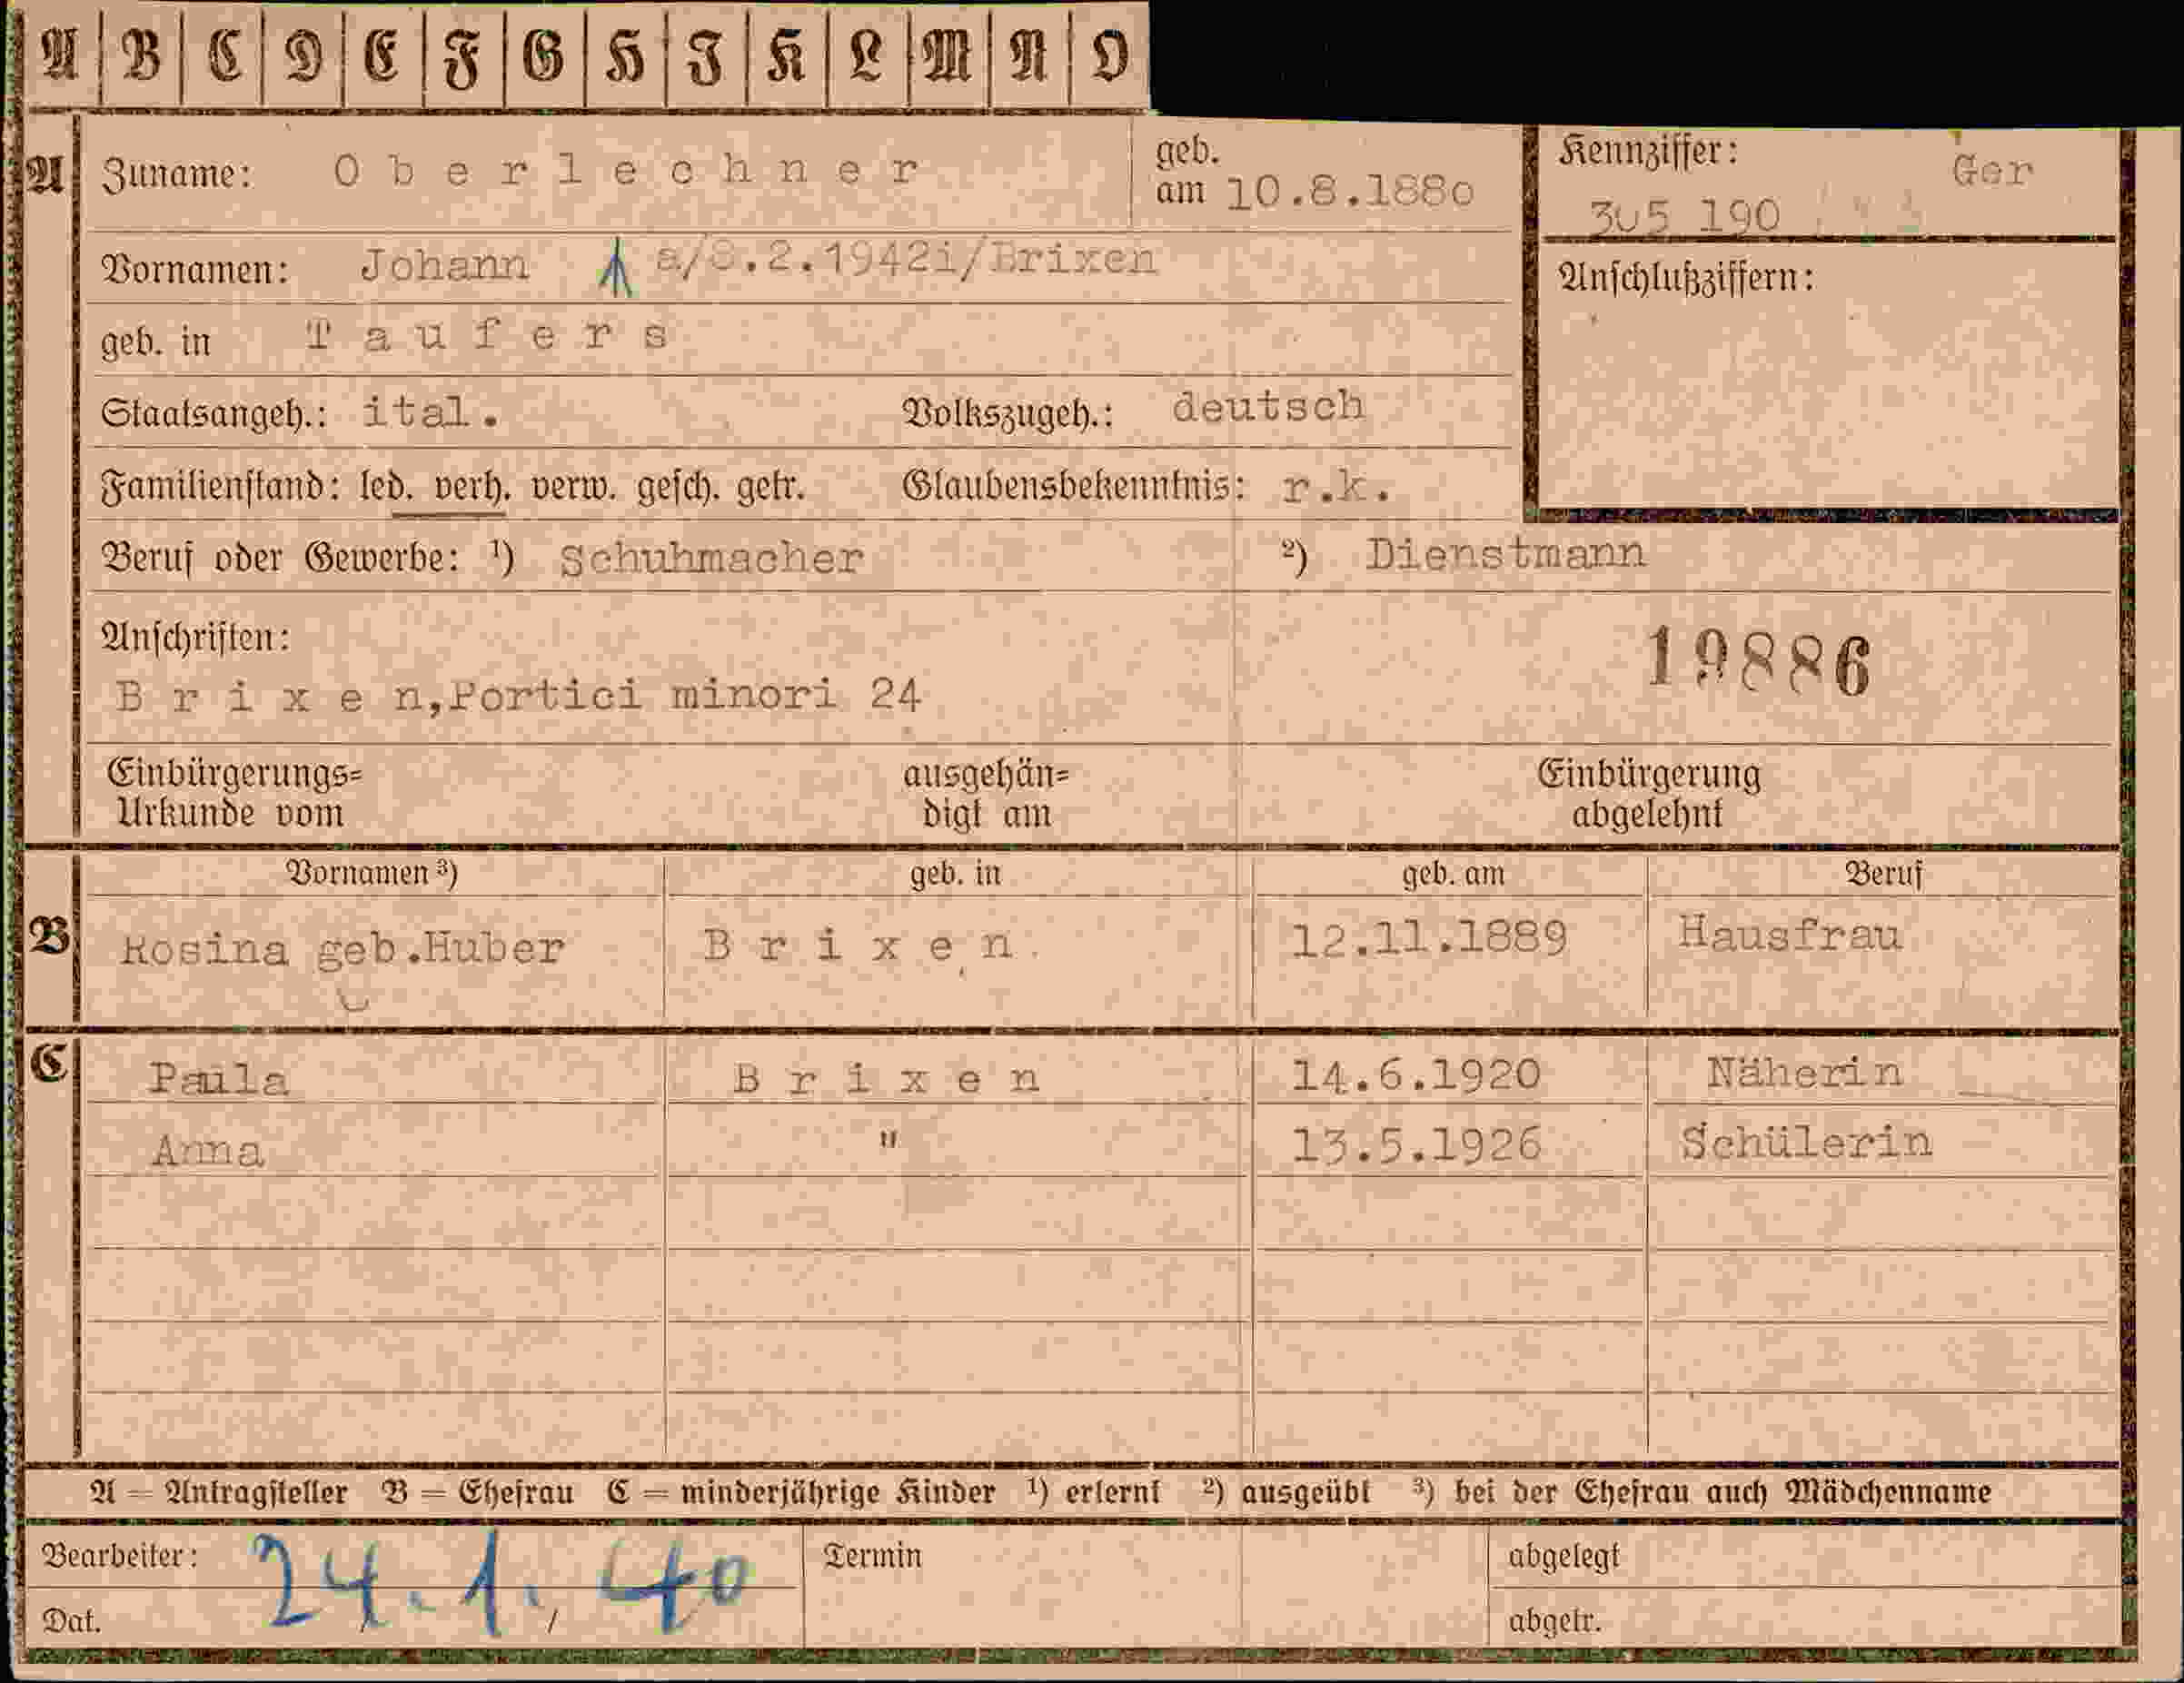 A B C D E F G H I K L M N O
A Zuname: O b e r l e c h n e r geb. am 10.8.1880 Kennziffer: Ger
305 190
Vornamen: Johann a/8.2.1942i/Brixen Anschlußziffern:
geb. in T a u f e r s
Staatsangeh.: ital. Volkszugeh.: deutsch
Familienstand: led. verh. verw. gesch. getr. Glaubensbekenntnis: r.k.
Beruf oder Gewerbe: ¹) Schuhmacher ²) Dienstmann
Anschriften: 19886
B r i x e n,Portici minori 24
Einbürgerungs= ausgehän= Einbürgerung
Urkunde vom digt am abgelehnt
Vornamen ³) geb. in geb. am Beruf
B Rosina geb.Huber B r i x e n 12.11.1889 Hausfrau
C Paula B r i x e n 14.6.1920 Näherin
Anna " 13.5.1926 Schülerin
A = Antragsteller B = Ehefrau C = minderjährige Kinder ¹) erlernt ²) ausgeübt ³) bei der Ehefrau auch Mädchenname
Bearbeiter: 24.1.40 Termin abgelegt
Dat. abgetr.